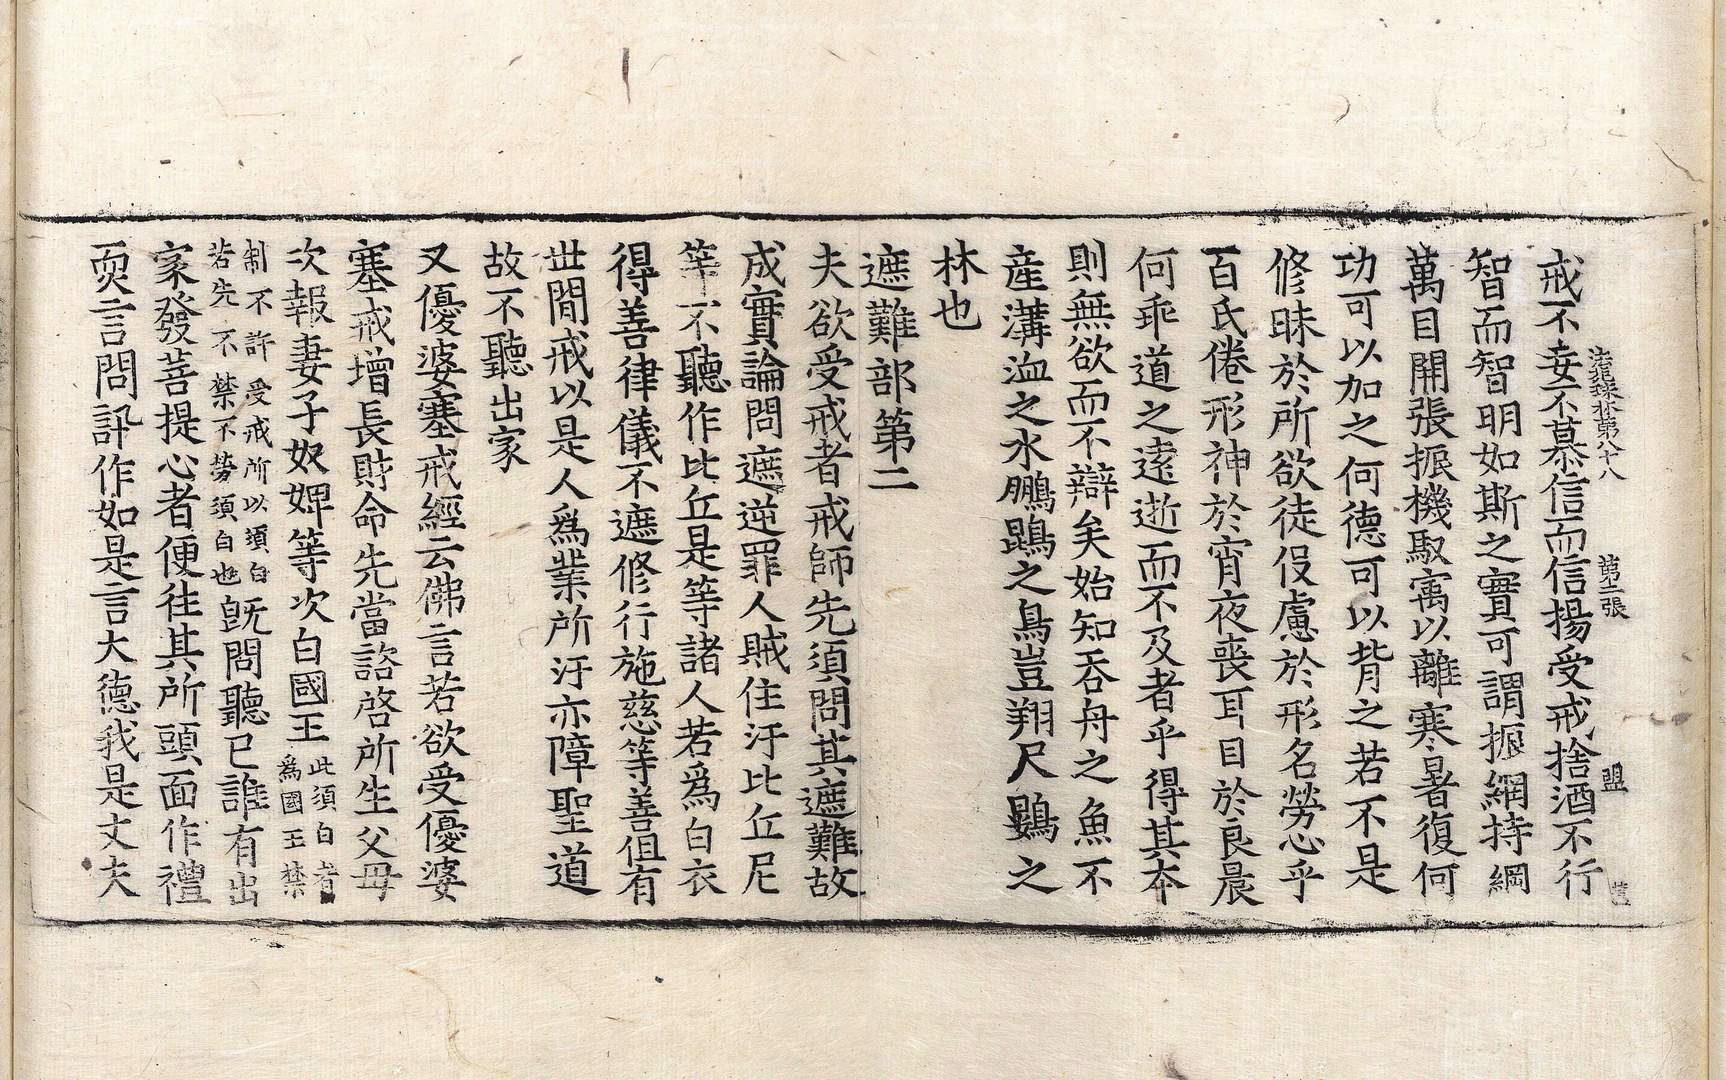 法苑珠林第八十八 第二張 盟
戒不妄不慕信而信揚受戒捨酒不行
智而智明如斯之實可謂振網持綱
萬目開張振機馭寓以離寒暑復何
功可以加之何德可以背之若不是
修昧於所欲徒伇慮於形名勞心乎
百氏倦形神於宵夜喪耳目於良晨
何乖道之遠逝而不及者乎得其夲
則無欲而不辯矣始知吞舟之魚不
産溝洫之水鵬鶤之鳥豈翔尺鷃之
林也
遮難部第二
夫欲受戒者戒師先須問其遮難故
成實論問遮逆罪人賊住汙比丘尼
等不聽作比丘是等諸人若爲白衣
得善律儀不遮修行施慈等善但有
世閒戒以是人爲業所汙亦障聖道
故不聽出家
又優婆塞戒經云佛言若欲受優婆
塞戒增長財命先當諮啓所生父母
次報妻子奴婢等次白國王此須白者爲國王禁
制不許受戒所以須白若先不禁不勞須白也旣問聽已誰有出
家發菩提心者便往其所頭面作禮
耎言問訊作如是言大德我是丈夫